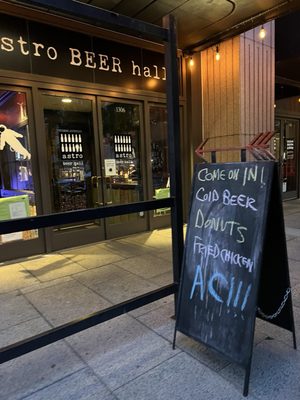 astro BEER hall
1306
astro
beer hall
astro
beer hall
COME ON IN!
COLD BEER
DONUTS
FRIED CHICKEN
AC!!!